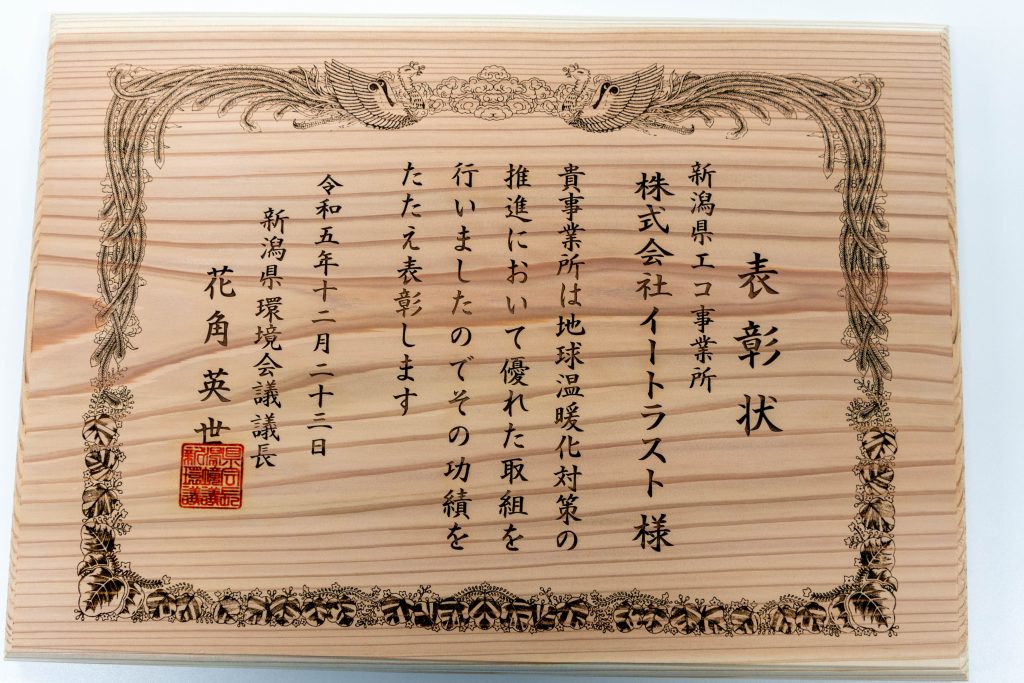 表彰状
新潟県エコ事業所
株式会社イートラスト 様
貴事業所は地球温暖化対策の
推進において優れた取組を
行いましたのでその功績を
たたえ表彰します
令和五年十二月二十三日
新潟県環境会議議長
花角英世